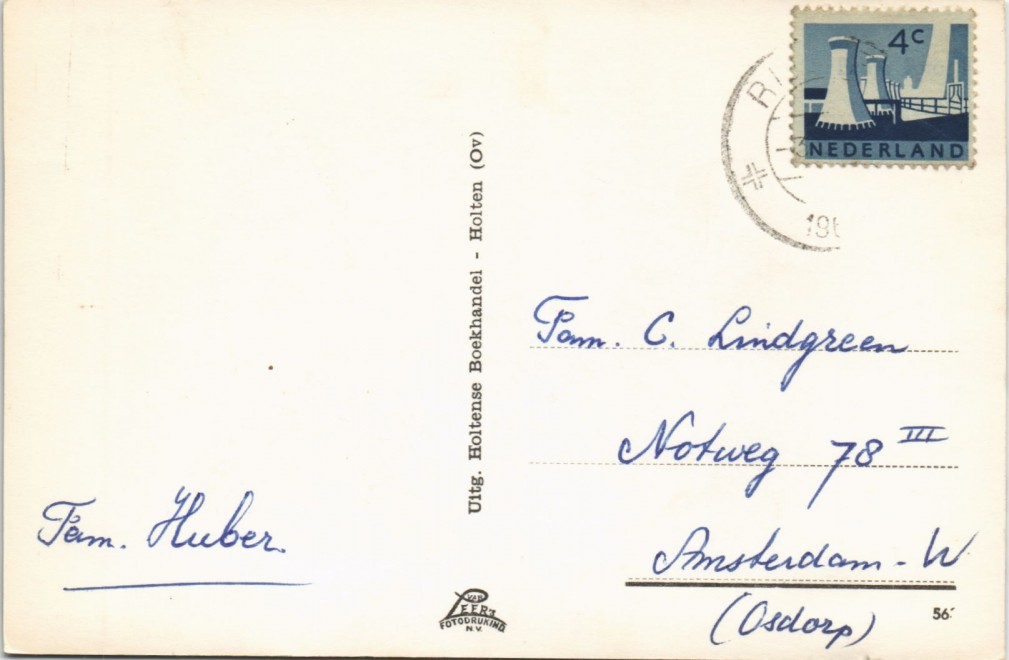 4c
NEDERLAND
Fam. C. Lindgreen
Notweg 78 III
Amsterdam - W
(Osdorp)
56
Uitg. Holtense Boekhandel - Holten (Ov)
Fam. Huber.
VAN
LEER'S
FOTODRUKIND.
N.V.